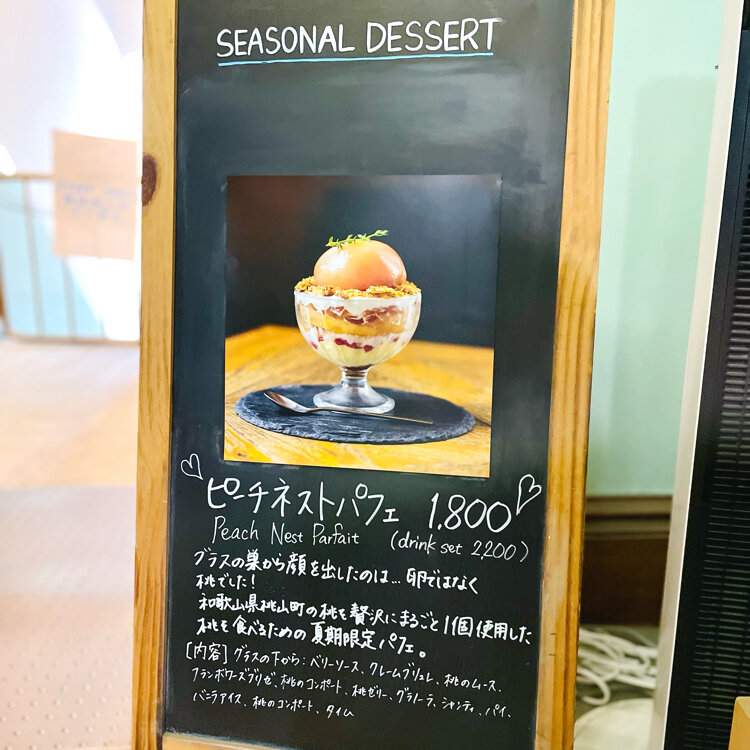 SEASONAL DESSERT
ピーチネストパフェ 1.800
Peach Nest Parfait (drink set 2,200)
グラスの巣から顔を出したのは…卵ではなく
桃でした!
和歌山県桃山町の桃を贅沢にまるごと1個使用した
桃を食べるための夏期限定パフェ。
[内容] グラスの下から:ベリーソース、クレームブリュレ、桃のムース、
フランボワーズブリゼ、桃のコンポート、桃ゼリー、グラノーラ、シャンティ、パイ、
バニラアイス、桃のコンポート、タイム